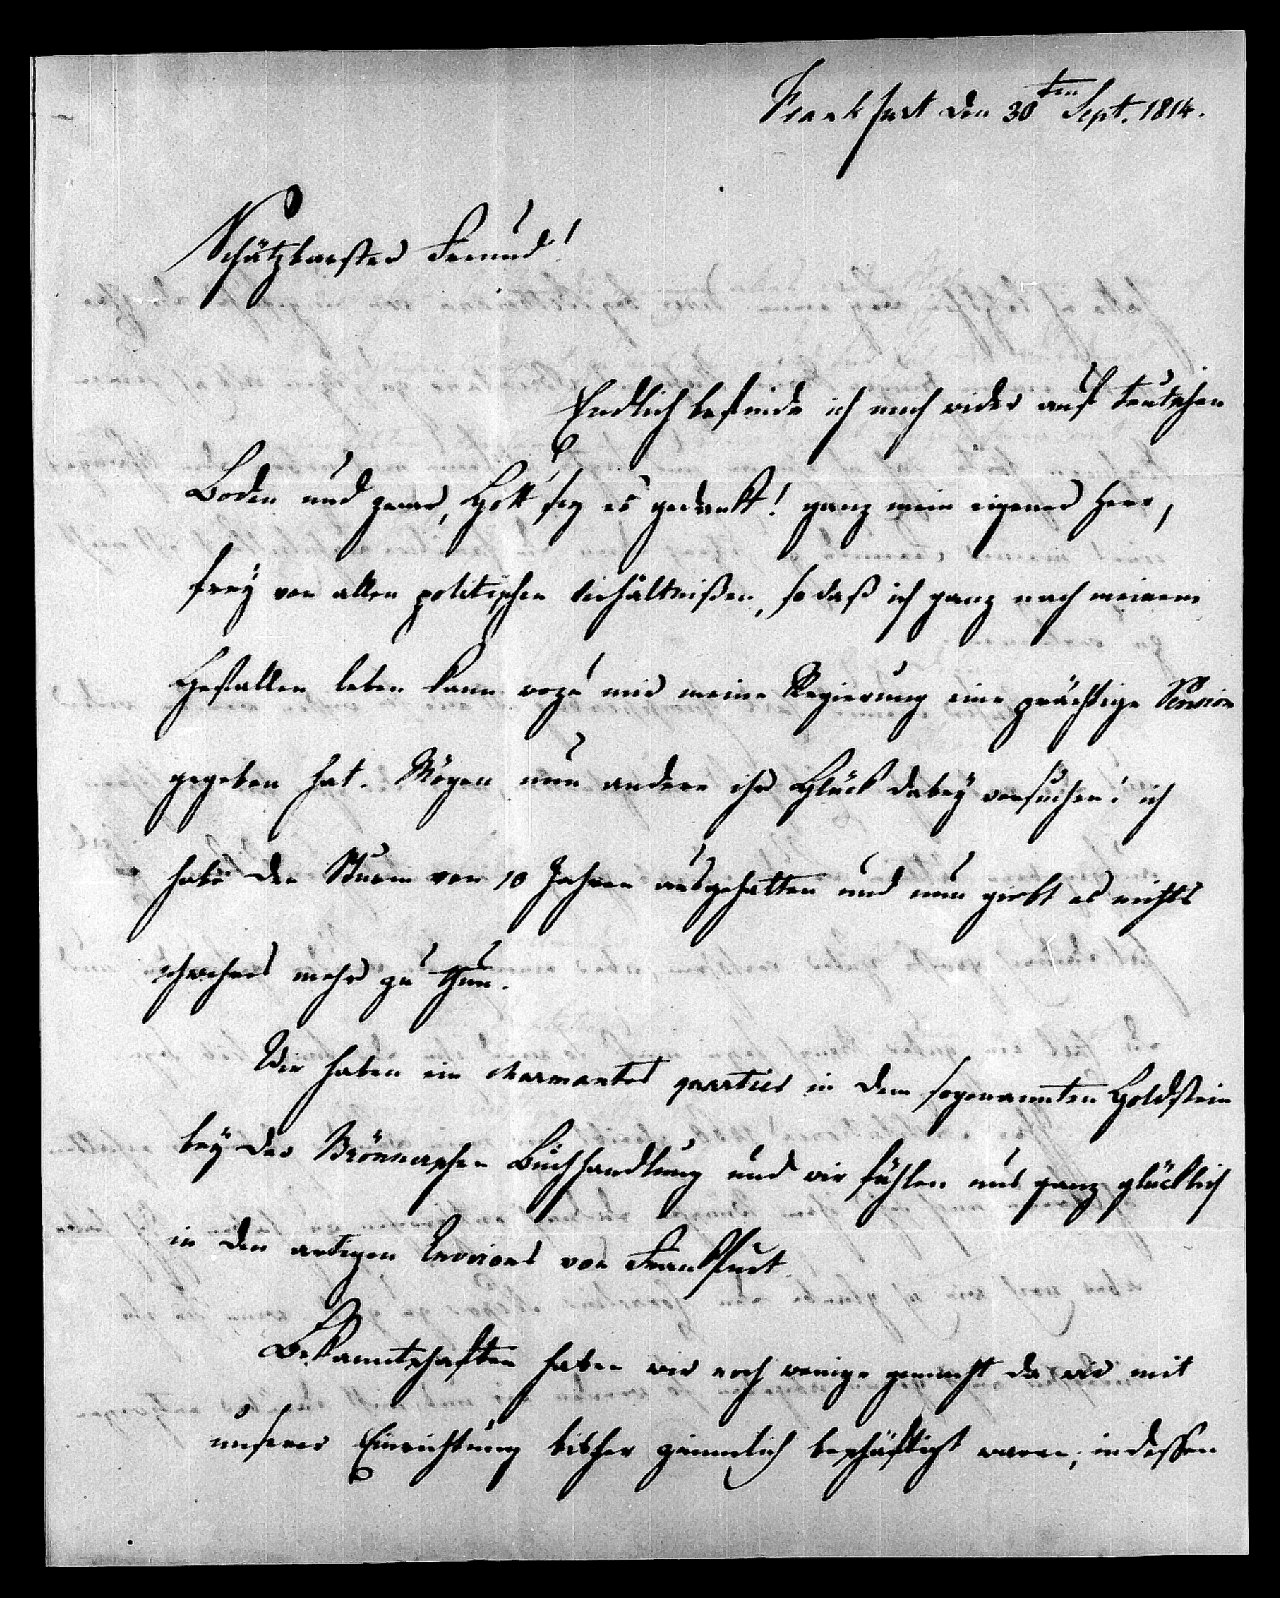 Frankfurt den 30ten Sept. 1814.
Schätzbarster Freund!
Endlich befinde ich mich wider auf teutschen
Boden und zwar, Gott sey es gedankt! ganz mein eigener Herr,
frey von allen politischen Verhältnißen, so daß ich ganz nach meinem
Gefallen leben kann wozu mir meine Regierung eine prächtige Pension
gegeben hat. Mögen nun andere ihr Glück dabey versuchen! ich
habe den Sturm von 10 Jahren ausgehalten und nun giebt es nichts
schweres mehr zu thun.
Wir haben ein charmantes quartier in dem sogenannten Goldstein
bey der Brönnerschen Buchhandlung und wir fühlen uns ganz glücklich
in den artigen Environs von Frankfurt.
Bekanntschaften haben wir noch wenige gemacht da wir mit
unserer Einrichtung bisher ziemmlich beschäftigt waren; indessen